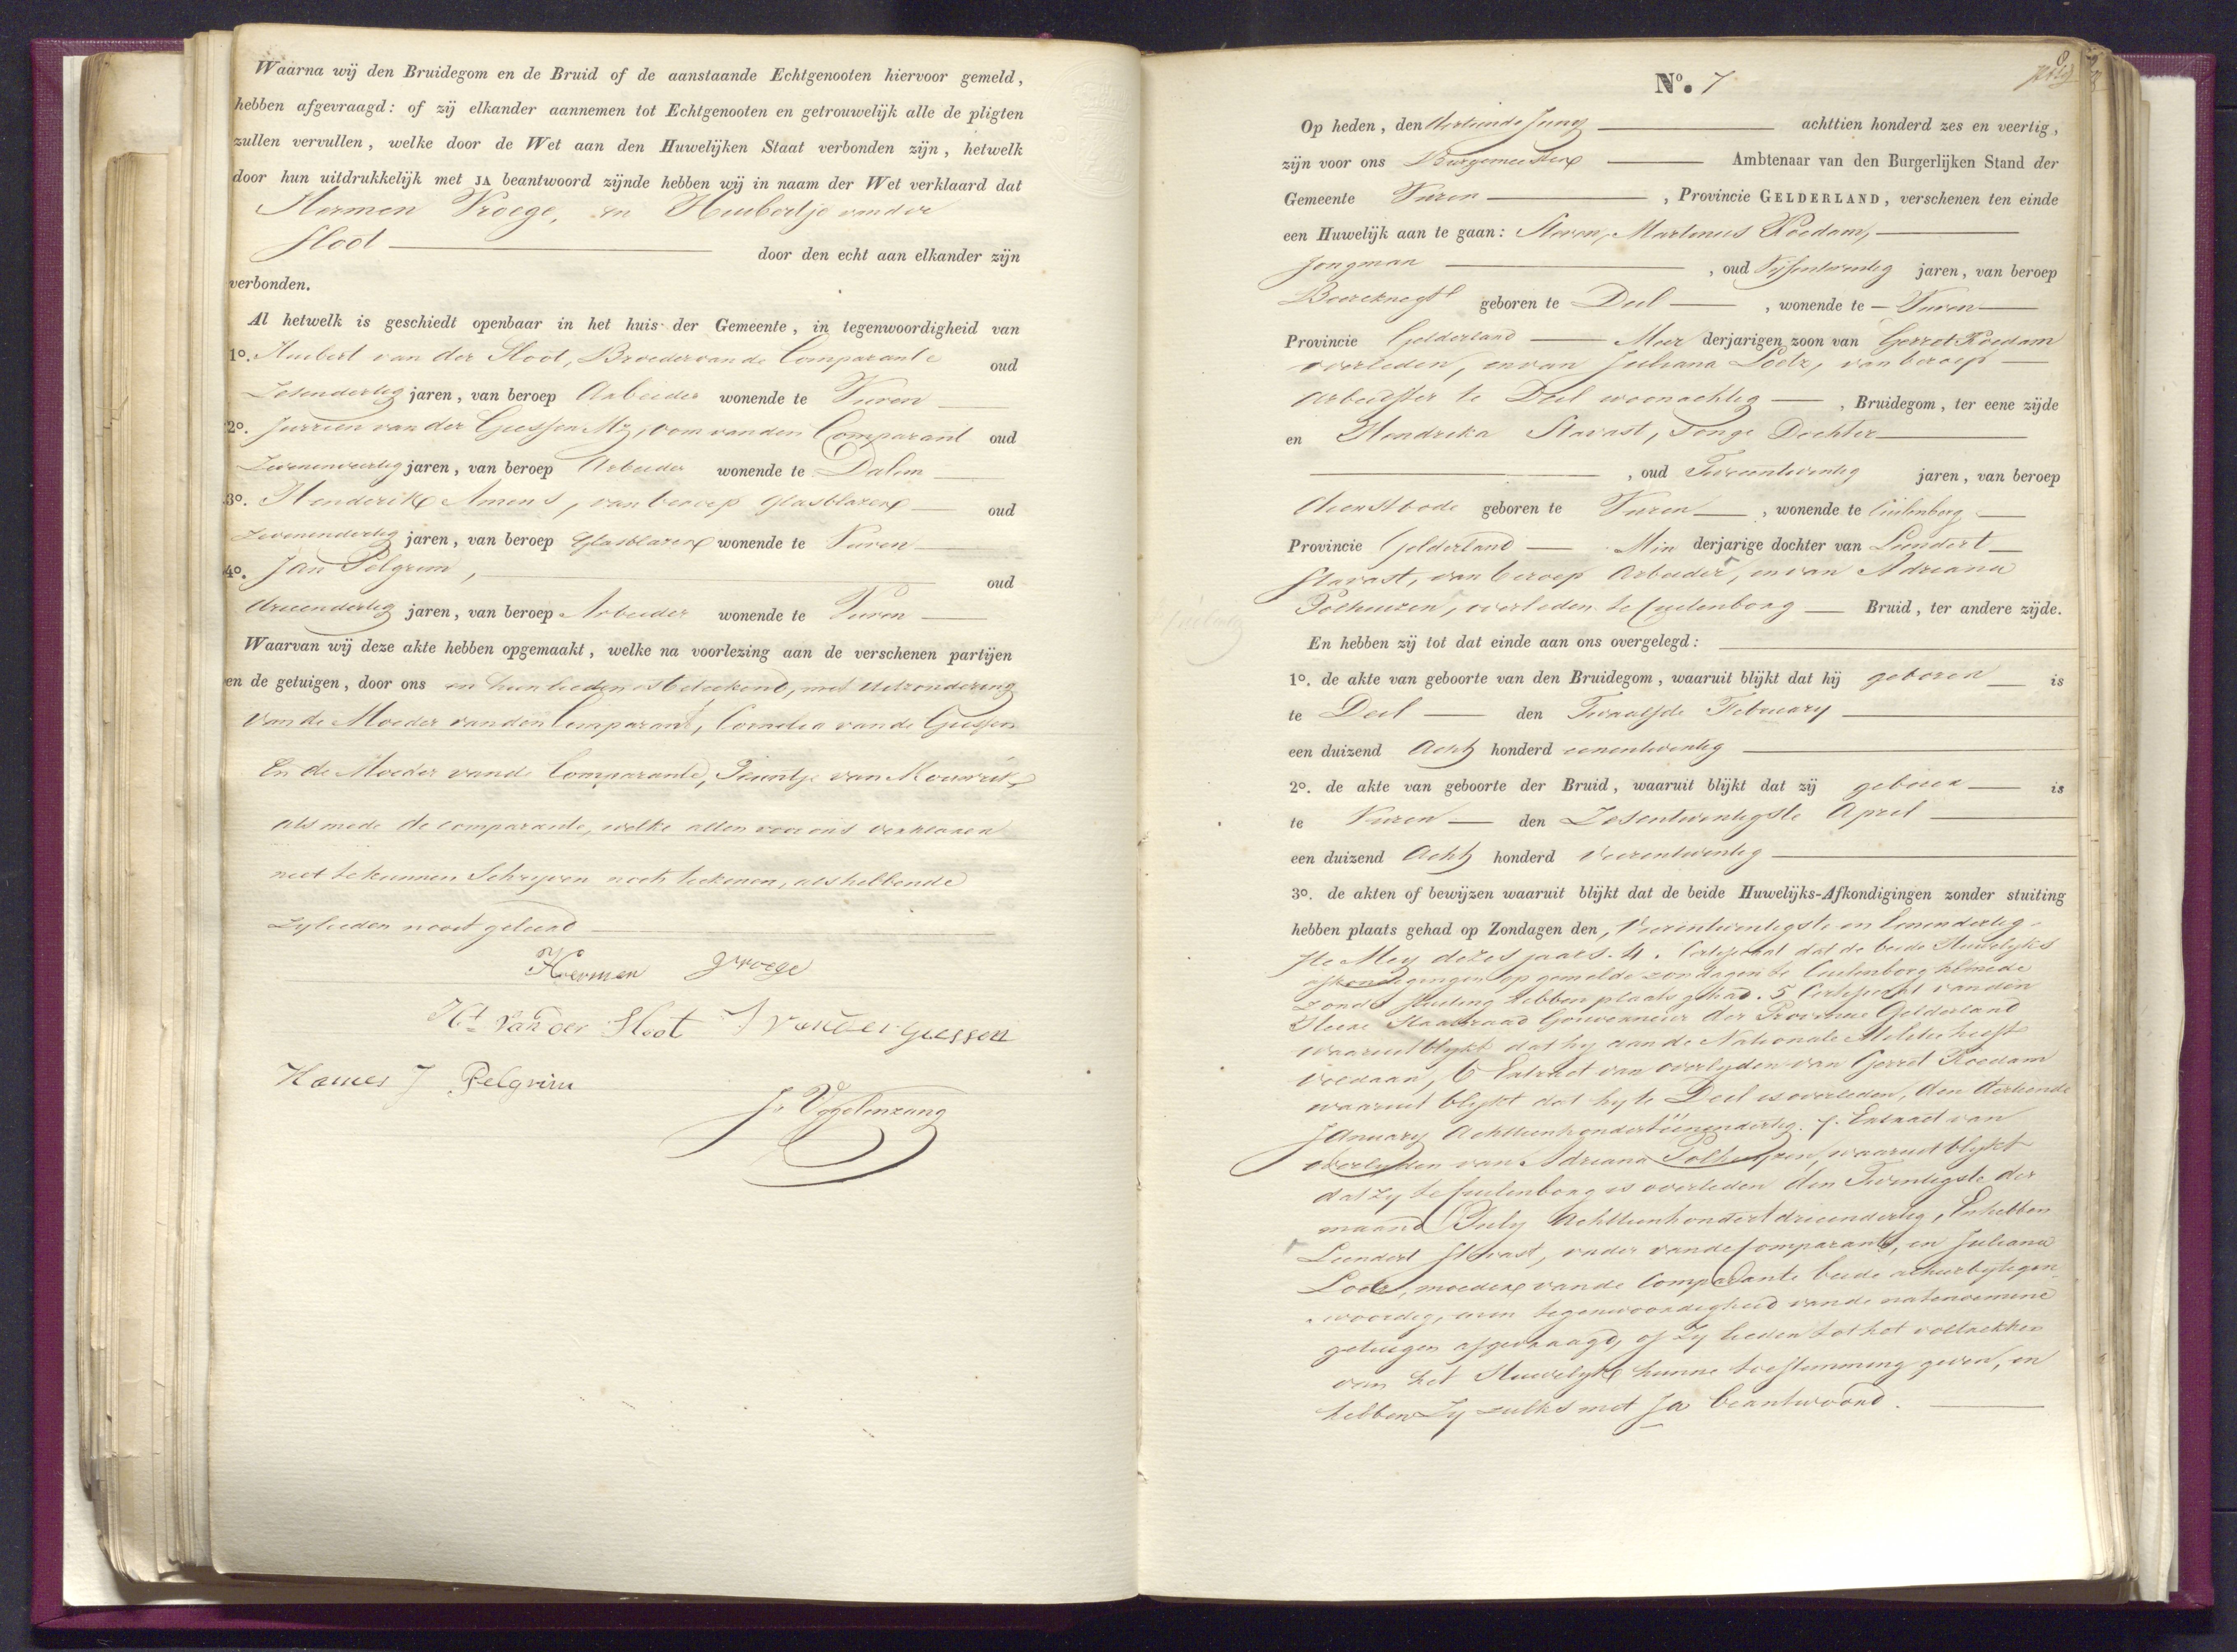 Waarna wij den Bruidegom en de Bruid of de aanstaande Echtgenooten hiervoor gemeld,
hebben afgevraagd: of zij elkander aannemen tot Echtgenooten en getrouwelijk alle de pligten
zullen vervullen, welke door de Wet aan den Huwelijken Staat verbonden zijn, hetwelk
door hun uitdrukkelijk met JA beantwoord zijnde hebben wij in naam der Wet verklaard dat
Hermen Vroege, en Huibertje van der
Sloot door den echt aan elkander zijn
verbonden.
Al hetwelk is geschiedt openbaar in het huis der Gemeente, in tegenwoordigheid van
1o. Huibert van der Sloot, Broeder van de Comparante oud
Zesendertig jaren, van beroep Arbeider wonende te Vuren
2o. Jurrien van der Giessen Mz, oom van den Comparant oud
Zevenenveertig jaren, van beroep Arbeider wonende te Dalem
3o. Henderik Amens, van beroep Glasblazer oud
Zevenendertig jaren, van beroep Glasblazer wonende te Vuren
4o. Jan Pelgrim, oud
drieendertig jaren, van beroep Arbeider wonende te Vuren
Waarvan wij deze akte hebben opgemaakt, welke na voorlezing aan de verschenen partijen
en de getuigen, door ons en hun lieden is beteekend, met uitzondering
van de Moeder van den Comparant, Cornelia van de Giessen
En de Moeder van de Comparante, van Mourik
als mede de comparante, welke allen voor ons verklaren
niet te kunnen Schrijven noch teekenen, als hebbende
zylieden nooit geleerd
Hermen Vroege
Ht van der Sloot J van der Giessen
H Amens J Pelgrim
J. Vogelenzang
No. 7
8
Op heden, den dertiende Juny achttien honderd zes en veertig,
zijn voor ons Burgemeester Ambtenaar van den Burgerlijken Stand der
Gemeente Vuren, Provincie GELDERLAND, verschenen ten einde
een Huwelijk aan te gaan: Steven, Martinus Roedam,
Jongman, oud Vijfentwintig jaren, van beroep
Boereknegt geboren te Deil, wonende te Vuren
Provincie Gelderland Meer derjarigen zoon van Gerret Roedam
overleden, en van Juliana Lootz, van beroep
Arbeidster te Deil woonachtig, Bruidegom, ter eene zijde
en Hendrika Stavast, Jonge Dochter
, oud Tweeentwintig jaren, van beroep
dienstbode geboren te Vuren, wonende te Cuilenborg
Provincie Gelderland Min derjarige dochter van Leendert
Stavast, van beroep Arbeider, en van Adriana
Polhuizen, overleden te Cuilenborg Bruid, ter andere zijde.
En hebben zij tot dat einde aan ons overgelegd:
1o. de akte van geboorte van den Bruidegom, waaruit blijkt dat hij geboren is
te Deil den Twaalfde February
een duizend Acht honderd eenentwintig
2o. de akte van geboorte der Bruid, waaruit blijkt dat zij geboren is
te Vuren den Zesentwintigste April
een duizend Acht honderd vierentwintig
3o. de akten of bewijzen waaruit blijkt dat de beide Huwelijks-Afkondigingen zonder stuiting
hebben plaats gehad op Zondagen den, Vierentwintigste en Eenendertig
ste Mey dezes jaars. 4. Certificaat dat de beide Huwelijks
afkondigingen op gemelde zondagen te Cuilenborg almede
zonder stuiting hebben plaats gehad. 5 Certificaat van den
Heere Staatsraad Gouverneur der Provincie Gelderland
waaruit blijkt dat hy aan de Nationale Militie heeft
voldaan, 6 Extract van overlyden van Gerret Roedam
waaruit blijkt dat hy te Deil is overleden, den dertiende
January Achttienhondert eenendertig. 7. Extract van
overlyden van Adriana Polhuyzen, waaruit blijkt
dat zy te Cuilenborg is overleden den Twintigste der
maand July Achttienhondert drieendertig, En hebben
Leendert Stavast, vader van de Comparante, en Juliana
Lootz, moeder van de Comparante beide alhier by tegen
woordig, en in tegenwoordigheid van de natenoemene
getuigen afgevraagd, of zy lieden tot het voltrekken
van het Huwelijk hunne toestemming geven, en
hebben zy zulks met Ja beantwoord.